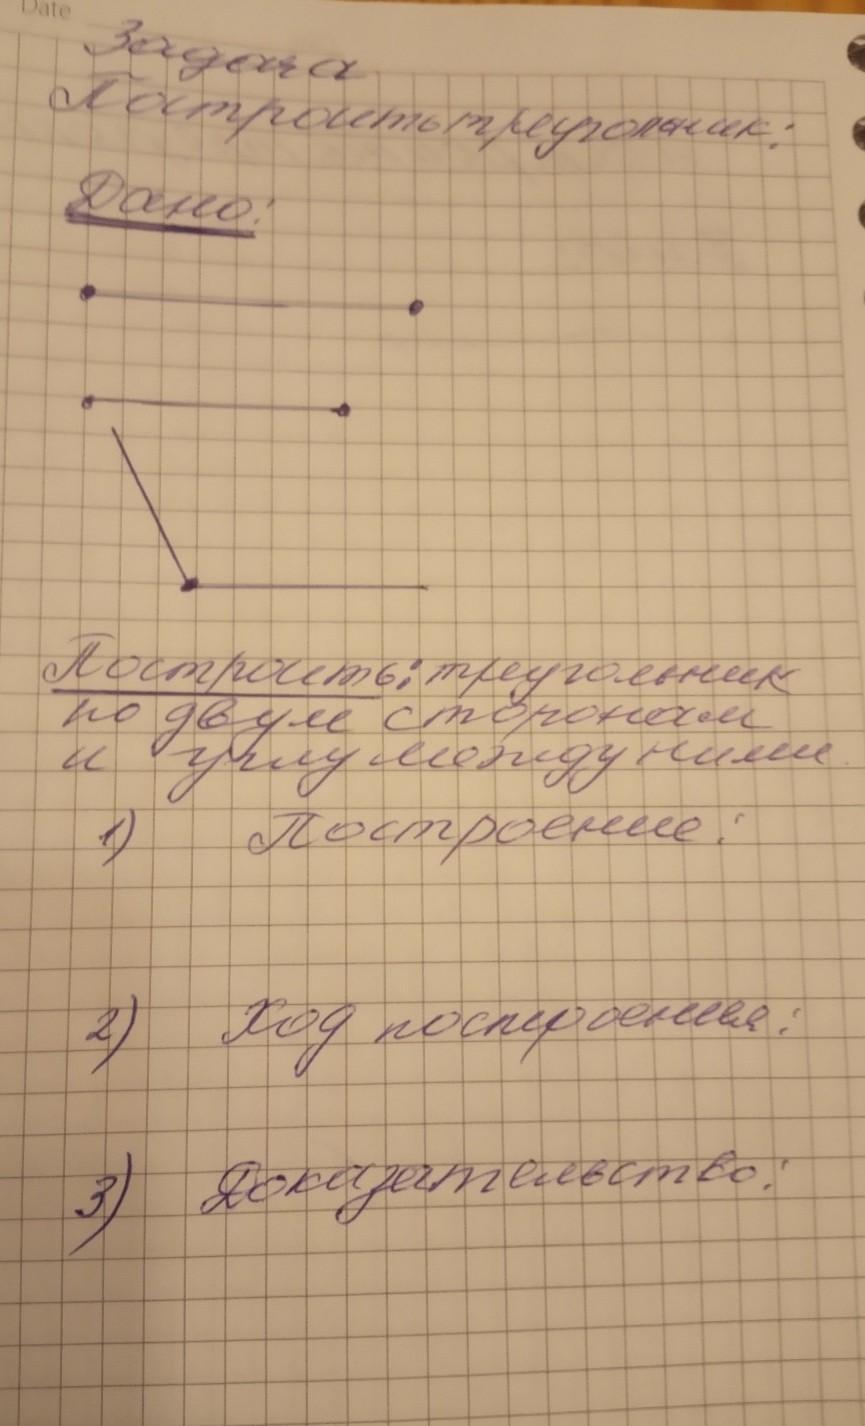 Date
Задача
Построить треугольник:
Дано:
Построить: треугольник
по двум сторонам
и углу между ними.
1) Построение:
2) Ход построения:
3) Доказательство: